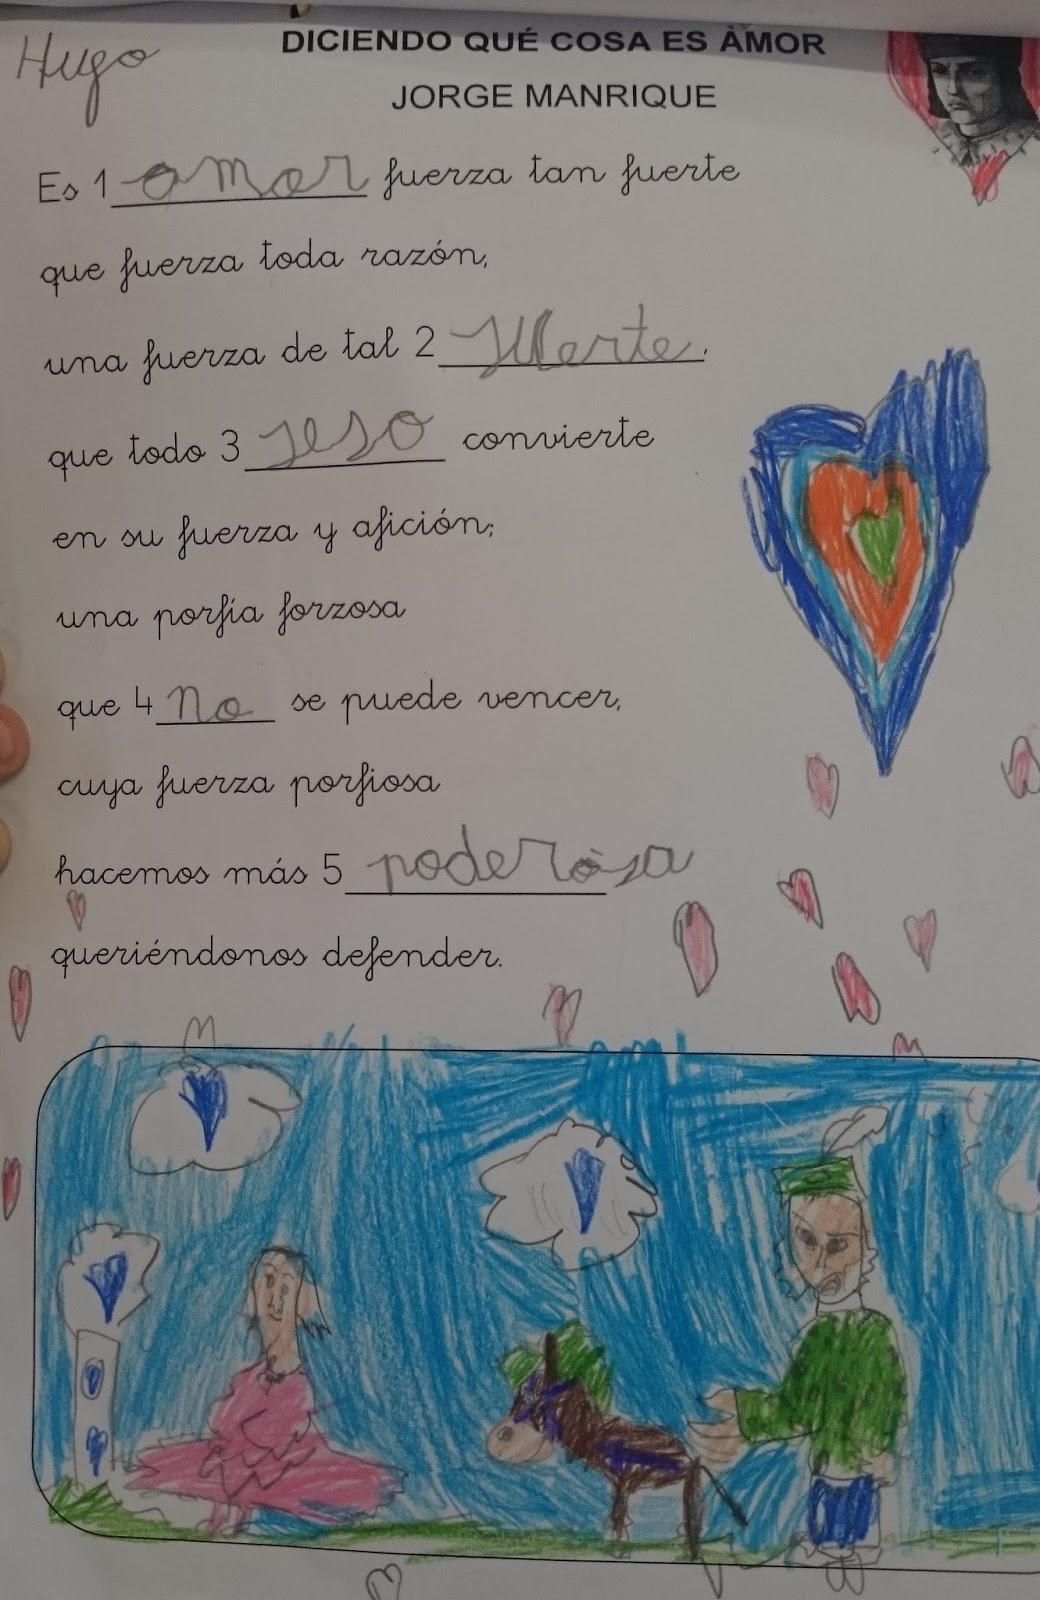 Hugo
DICIENDO QUÉ COSA ES AMOR
JORGE MANRIQUE
Es 1 amor fuerza tan fuerte
que fuerza toda razón,
una fuerza de tal 2 suerte,
que todo 3 seso convierte
en su fuerza y afición;
una porfía forzosa
que 4 no se puede vencer,
cuya fuerza porfiosa
hacemos más 5 poderosa
queriéndonos defender.